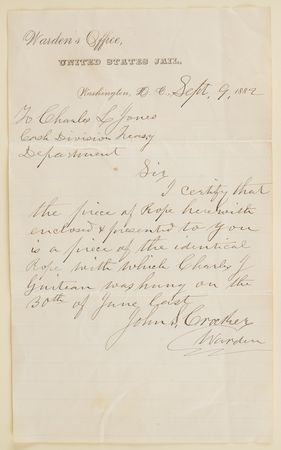 Warden's Office,
UNITED STATES JAIL,
Washington, D. C., Sept. 9, 1882
To Charles L Jones
Cash Division Treasy
Department
Sir
I certify that
the piece of Rope herewith
enclosed & presented to you
is a piece of the identical
Rope with which Charles J
Guiteau was hung on the
30th of June last
John S. Crocker
Warden